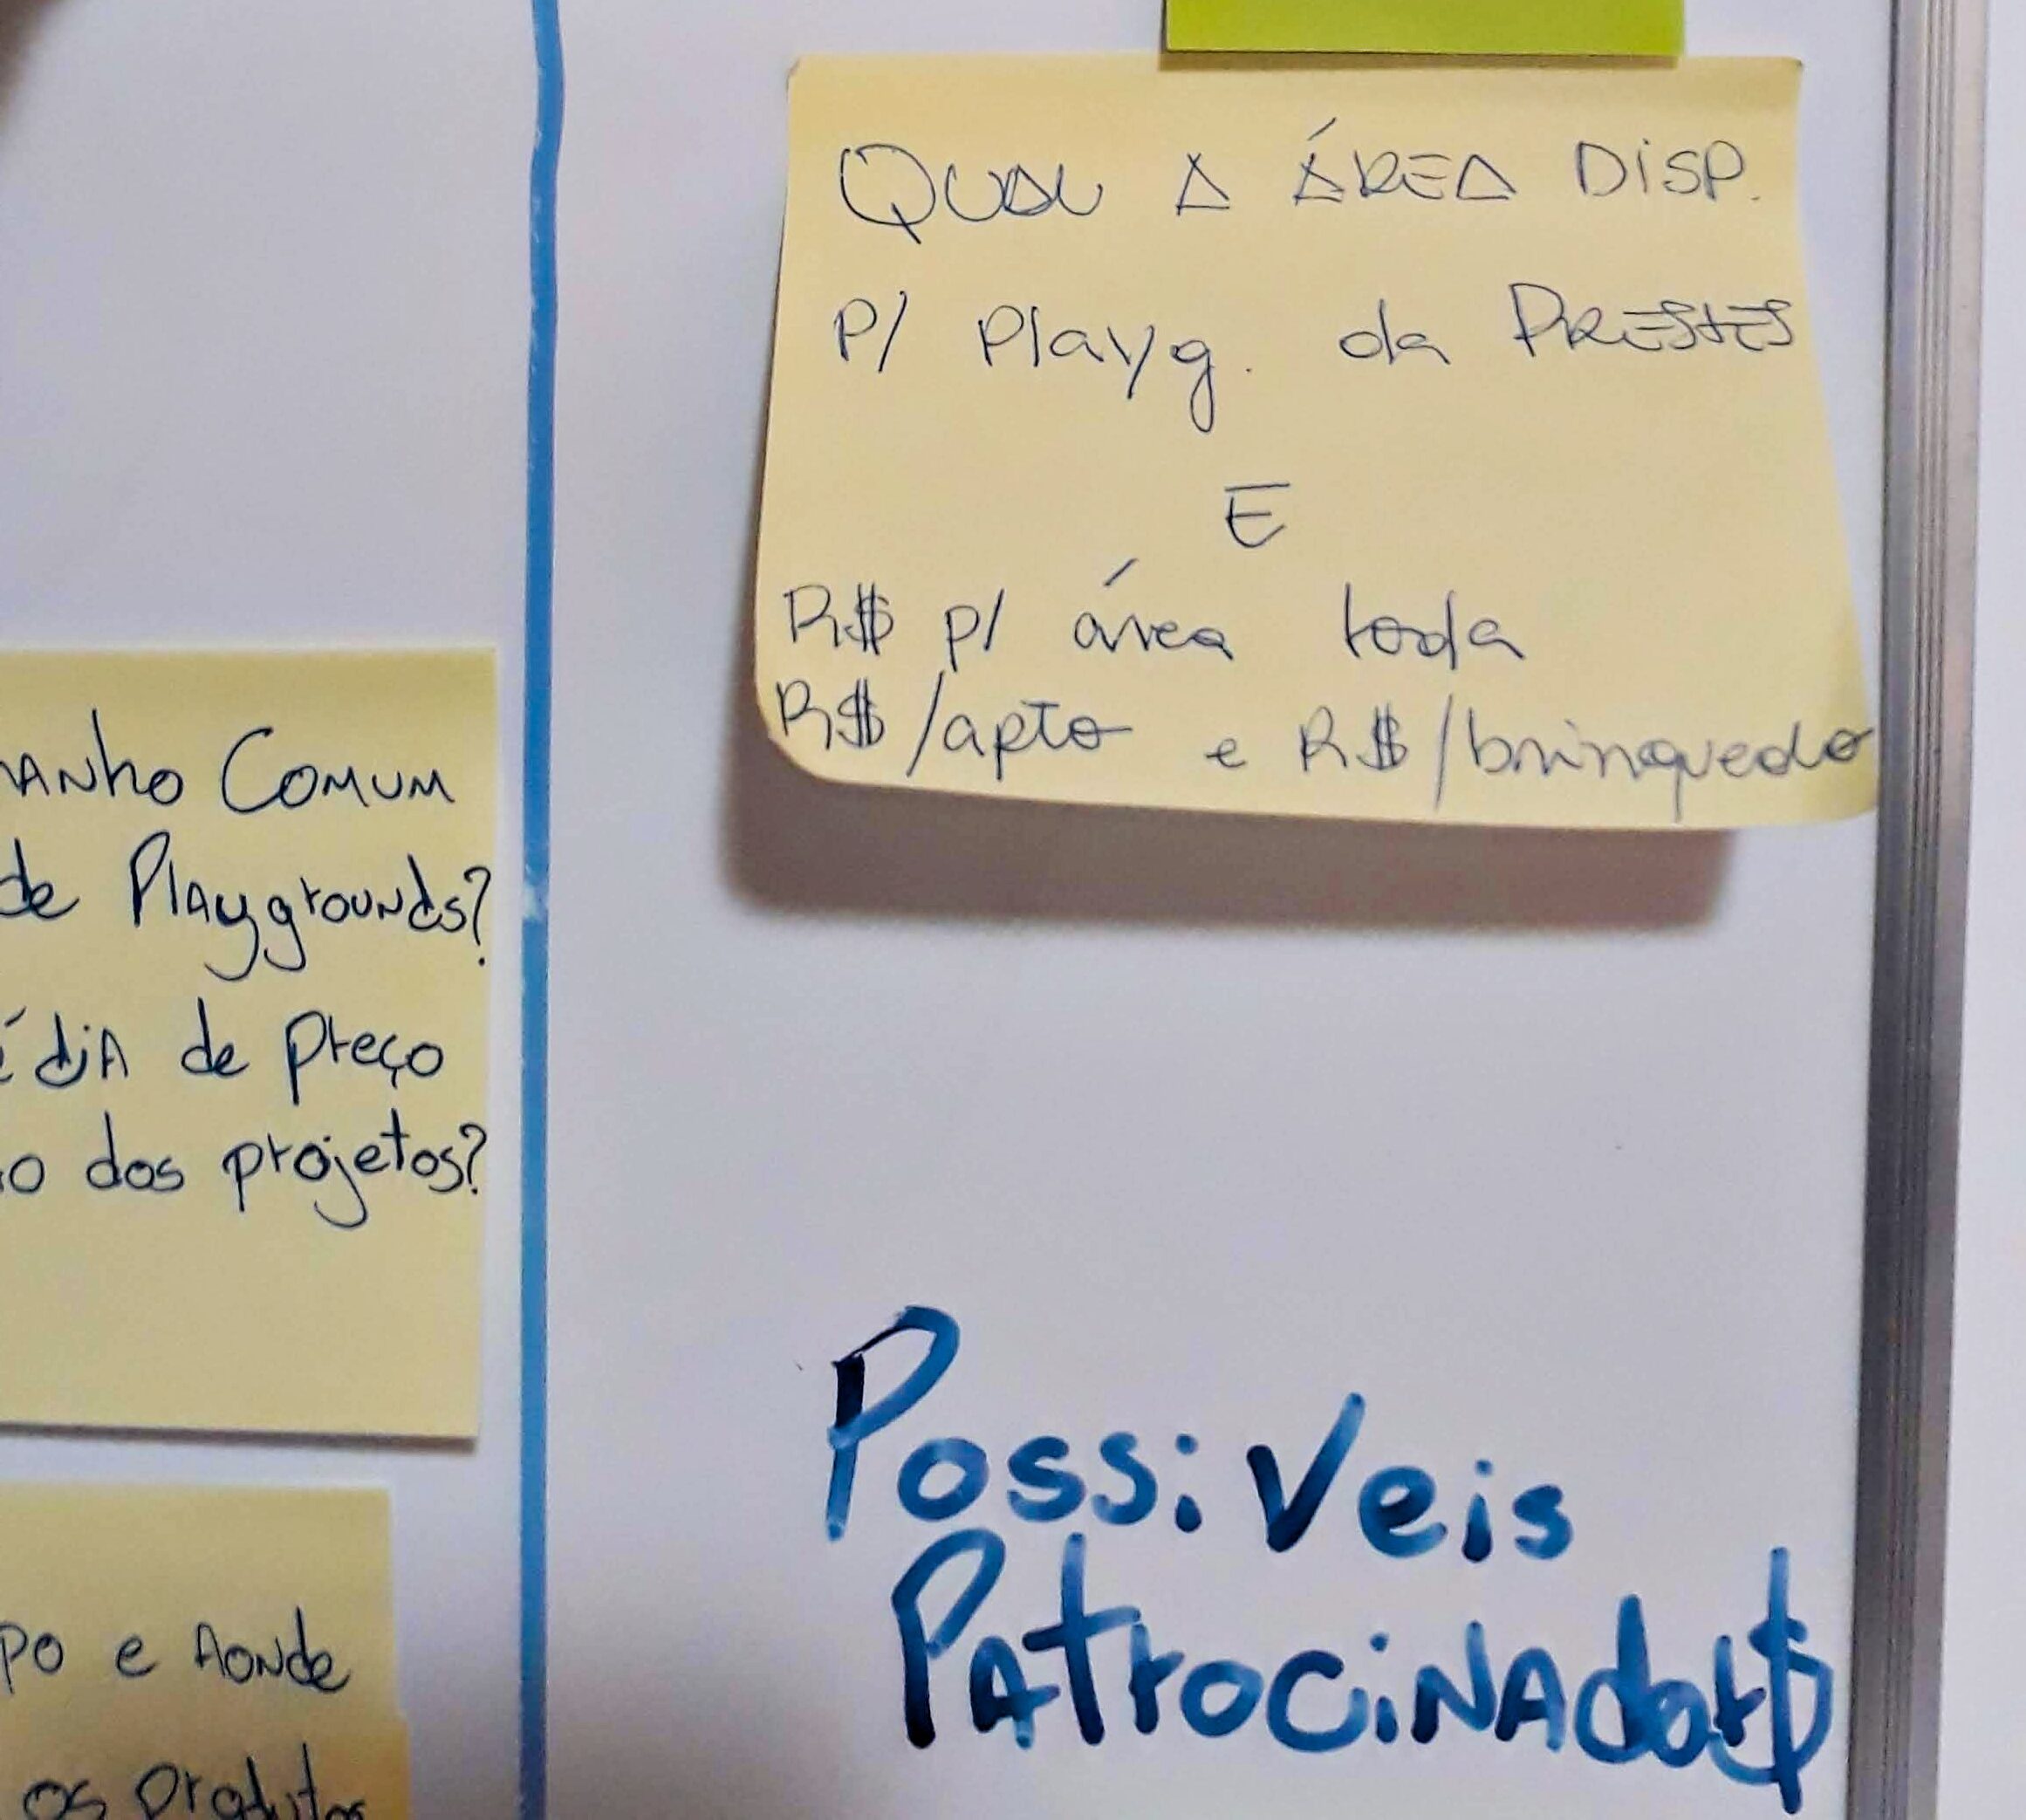 QUAL A ÁREA DISP.
P/ Playg. da PRESTES
E
R$ p/ área toda
R$/apto e R$/brinquedo
COMUM
de Playgrounds?
de preço
dos projetos?
e Aonde
os produtos
PossiVeis
PAtrociNAdor$